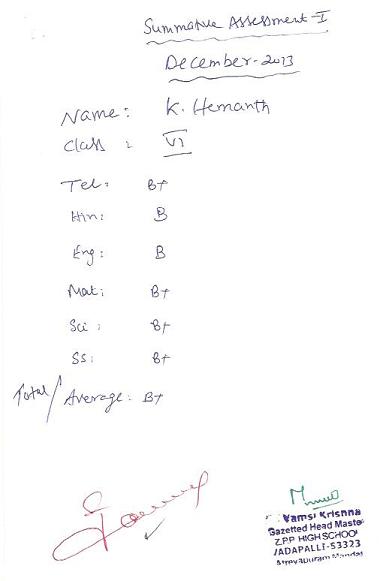 Summative Assessment-I
December-2013
Name: K. Hemanth
Class : VI
Tel: B+
Hin: B
Eng: B
Mat: B+
Sci : B+
SS: B+
Total/Average: B+
Vamsi Krishna
Gazetted Head Maste
Z.P.P HIGH SCHOOL
ADAPALLI-53323
Atreyapuram Mandal